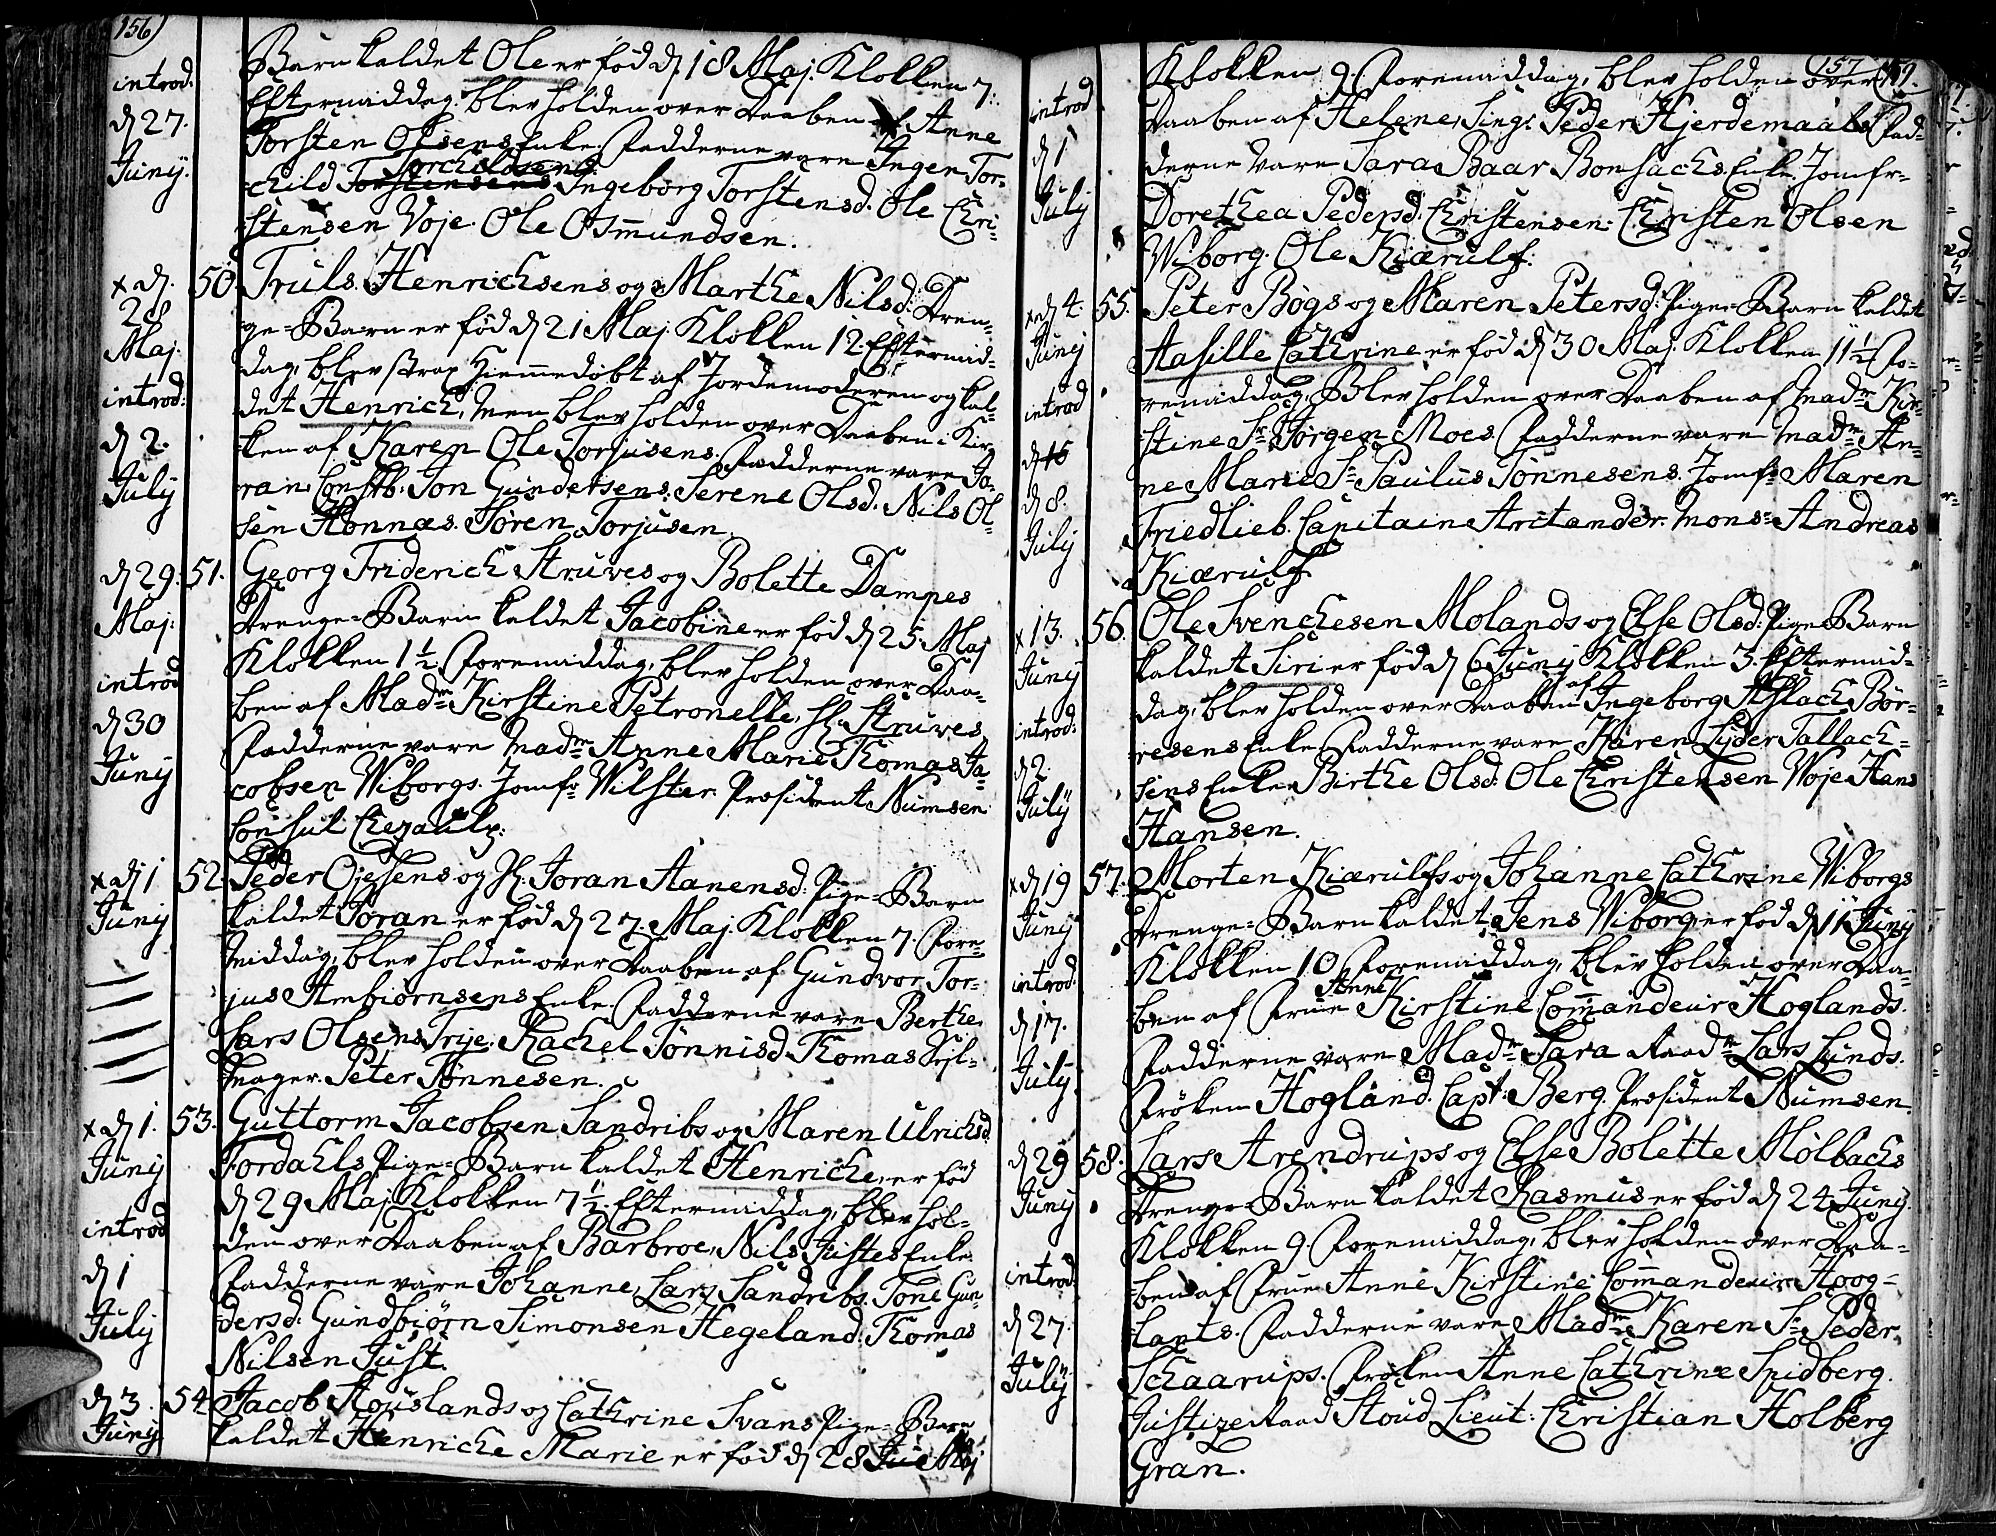 156
introd:
d 27.
Junÿ.
Barn kaldet Ole er fød d. 18 Maj. Klokken 7.
Eftermiddag. blev holden over Daaben af Anne
Torsten Olsens Enke. Fadderne vare Ingen Tor-
Torchildsens
child Torstensens Ingeborg Torstensd. Ole Chri-
stensen Voje. Ole Osmundsen.
x d.
28
Maj.
introd:
d 2.
Julÿ
50. Truls Henrichsens og Marthe Nilsd: Dren-
ge-Barn er fød d 21 Maj. Klokken 12. Eftermid-
dag, blev strax hiemmedøbt af Jordemoderen og kal-
det Henrich, men blev holden over Daaben i Kir-
ken af Karen Ole Torjusens. Fadderne vare Jo-
ran Constb: Jon Gundersens. Serene Olsd. Nils Ol-
sen Honnæs. Søren Torjusen.
d 29.
Maj:
introd
d 30
Junÿ
51. Georg Friderich Struves og Bolette Dampes
Drenge-Barn kaldet Jacobine er fød d 25. Maj
Klokken 1 1/2 Foremiddag, blev holden over Daa-
ben af Madm Kirstine Petronelle, Struves
Fadderne vare Madm Anne Marie Thomas Ja-
cobsen Wiborgs. Jomfr Wilster. Præsident Numsen
Consul
x d 1
Junÿ
52. Peder Ojesens og Joran Aanensd: Pige-Barn
kaldet Joran er fød d 27. Maj. Klokken 7. Fore-
middag, blev holden over Daaben af Gundvor Tor-
jus Ambiørnsens Enke. Fadderne vare Berthe
Lars Olsens Trÿe. Rachel Tønnisd. Thomas Sejl-
mager. Peter Tønnesen.
x d 1.
Junÿ
introd
d 1
Julÿ
53. Guttorm Jacobsen Sandribs og Maren Ulrichsd
Fordahls Pige-Barn kaldet Henriche, er fød
d 29 Maj. Klokken 7 1/2. Eftermiddag, blev hol-
den over Daaben af Barbroe, Nils Justes Enke.
Fadderne vare Johanne, Lars Sandribs. Tone Gun-
dersd. Gundbiørn Simonsen Hegeland. Thomas
Nilsen Just.
d 3.
Junÿ
54. Jacob Houslands og Cathrine Svans Pige-Barn
kaldet Henriche Marie er fød d 28 Maj.
157 159.
introd
d 1
Julÿ
Klokken 9. Foremiddag, blev holden over
Daaben af Helene, Sing: Peder Hjerdemaals. Fad-
derne vare Sara Baar Bonsachs Enke. Jomfr-
Dorethea Pedersd. Christensen. Christen Olsen
Wiborg. Ole Kiærulf.
x d 4.
Junÿ
introd
d 8.
Julÿ
55. Peter Bøgs og Maren Petersd: Pige-Barn kaldet
Aasille Cathrine er fød d 30 Maj. Klokken 11 1/2 Fo-
remiddag, Blev holden over Daaben af Madm Kir-
stine Sr Jørgen Moes. Fadderne vare Madm An-
ne Marie Sr Paulus Tønnesens. Jomfr Maren
Friedlieb. Capitain Arctander. Mons: Andreas
Kiærulf
x 13.
Junÿ
introd.
d 2.
Julÿ
56. Ole Svenchesen Molands og Else Olsd. Pige-Barn
kaldet Siri er fød d 6 Junÿ Klokken 3. Eftermid-
dag, blev holden over Daaben af Ingeborg Aslach Bør-
resens Enke. Fadderne vare Karen Syder Tallach-
sens Enke. Birthe Olsd: Ole Christensen Woje. Hans
Hansen.
x d 19
Junÿ
introd.
d 17.
Julÿ
57. Morten Kiærulfs og Johanne Cathrine Wiborgs
Drenge-Barn kaldet Jens Wiborg er fød d 11 Junÿ
Klokken 10 Foremiddag, blev holden over Daa-
Anne
ben af Frue Kirstine Commandeur Hoglands.
Fadderne vare Madm Sara Raadm Lars Lunds.
Frøken Hogland. Capt: Berg. Præsident Numsen.
d 29
Junÿ
introd.
d 27.
Julÿ
58. Lars Arendrups og Else Bolette Mølbachs
Drenge-Barn kaldet Rasmus er fød d 24 Junÿ.
Klokken 9 Foremiddag, blev holden over Daa-
ben af Frue Anne Kirstine Commandeur Hoog-
lants. Fadderne vare Madm Karen Sr Peder
Schaarups. Frøken Anne Cathrine Spidberg.
Justizeraad Stoud. Lieut: Christian Holberg
Gran.